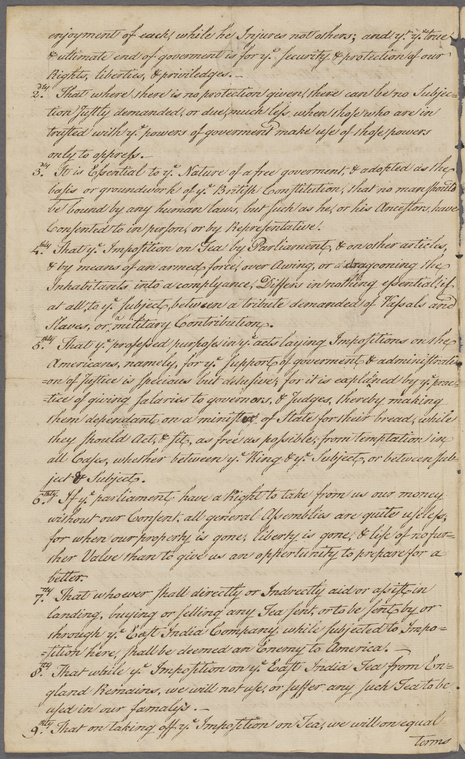 enjoyment of each, while he Injures not others; and yt. ye. true
& ultimate end of goverment is for ye. security & protection of our
Rights, liberties, & priviledges. —
2dly. That where there is no protection given, there can be no Subjec-
tion Justly demanded, or due, much less, when those who are in
trusted with ye. powers of goverment make use of those powers
only to oppress.
3dly. It is Essential to ye. Nature of a free goverment, & adopted as the
basis or groundwork of ye. British Constitution, that no man should
be bound by any human laws, but such as he, or his Ancestors, have
Consented to in person, or by Representative.
4thly. That ye. Imposition on Tea by Parliament, & on other articles,
& by means of an armed force, over Awing, or dragooning the
Inhabitants into a compliance, Differs in nothing essential, if
at all, to ye. Subject, between a tribute demanded of Vassals and
Slaves, or, a military Contribution.
5thly. That ye. professed purpose in ye. acts laying Impositions on the
Americans, namely, for ye. Support of goverment & administrati-
=on of Justice is Specious but delusive; for it is explained by ye. prac-
=tice of giving Salaries to governors, & Judges, thereby making
them dependant on a minister of State for their bread, while
they should Act, & sit, as free as possible, from temptation in
all Cases, whether between ye. King & ye. Subject, or between Sub-
ject & Subject.
6thly. If ye. parliament have a Right to take from us our money
without our Consent, all general Assemblies are quite useless,
for when our property is gone, liberty is gone, & life of no fur-
ther Value than to give us an opportunity to prepare for a
better.
7thly. That whoever shall directly or Indirectly aid or assist in
landing, buying or selling any Tea sent, or to be sent, by or
through ye. East India Company, while subjected to Impo-
=sition here, shall be deemed an Enemy to America. —
8thly. That while ye. Imposition on ye. East India Tea from En-
gland Remains, we will not use, or suffer any such Tea to be
used in our familys. —
9thly. That on taking off ye. Imposition on Tea, we will on equal
terms